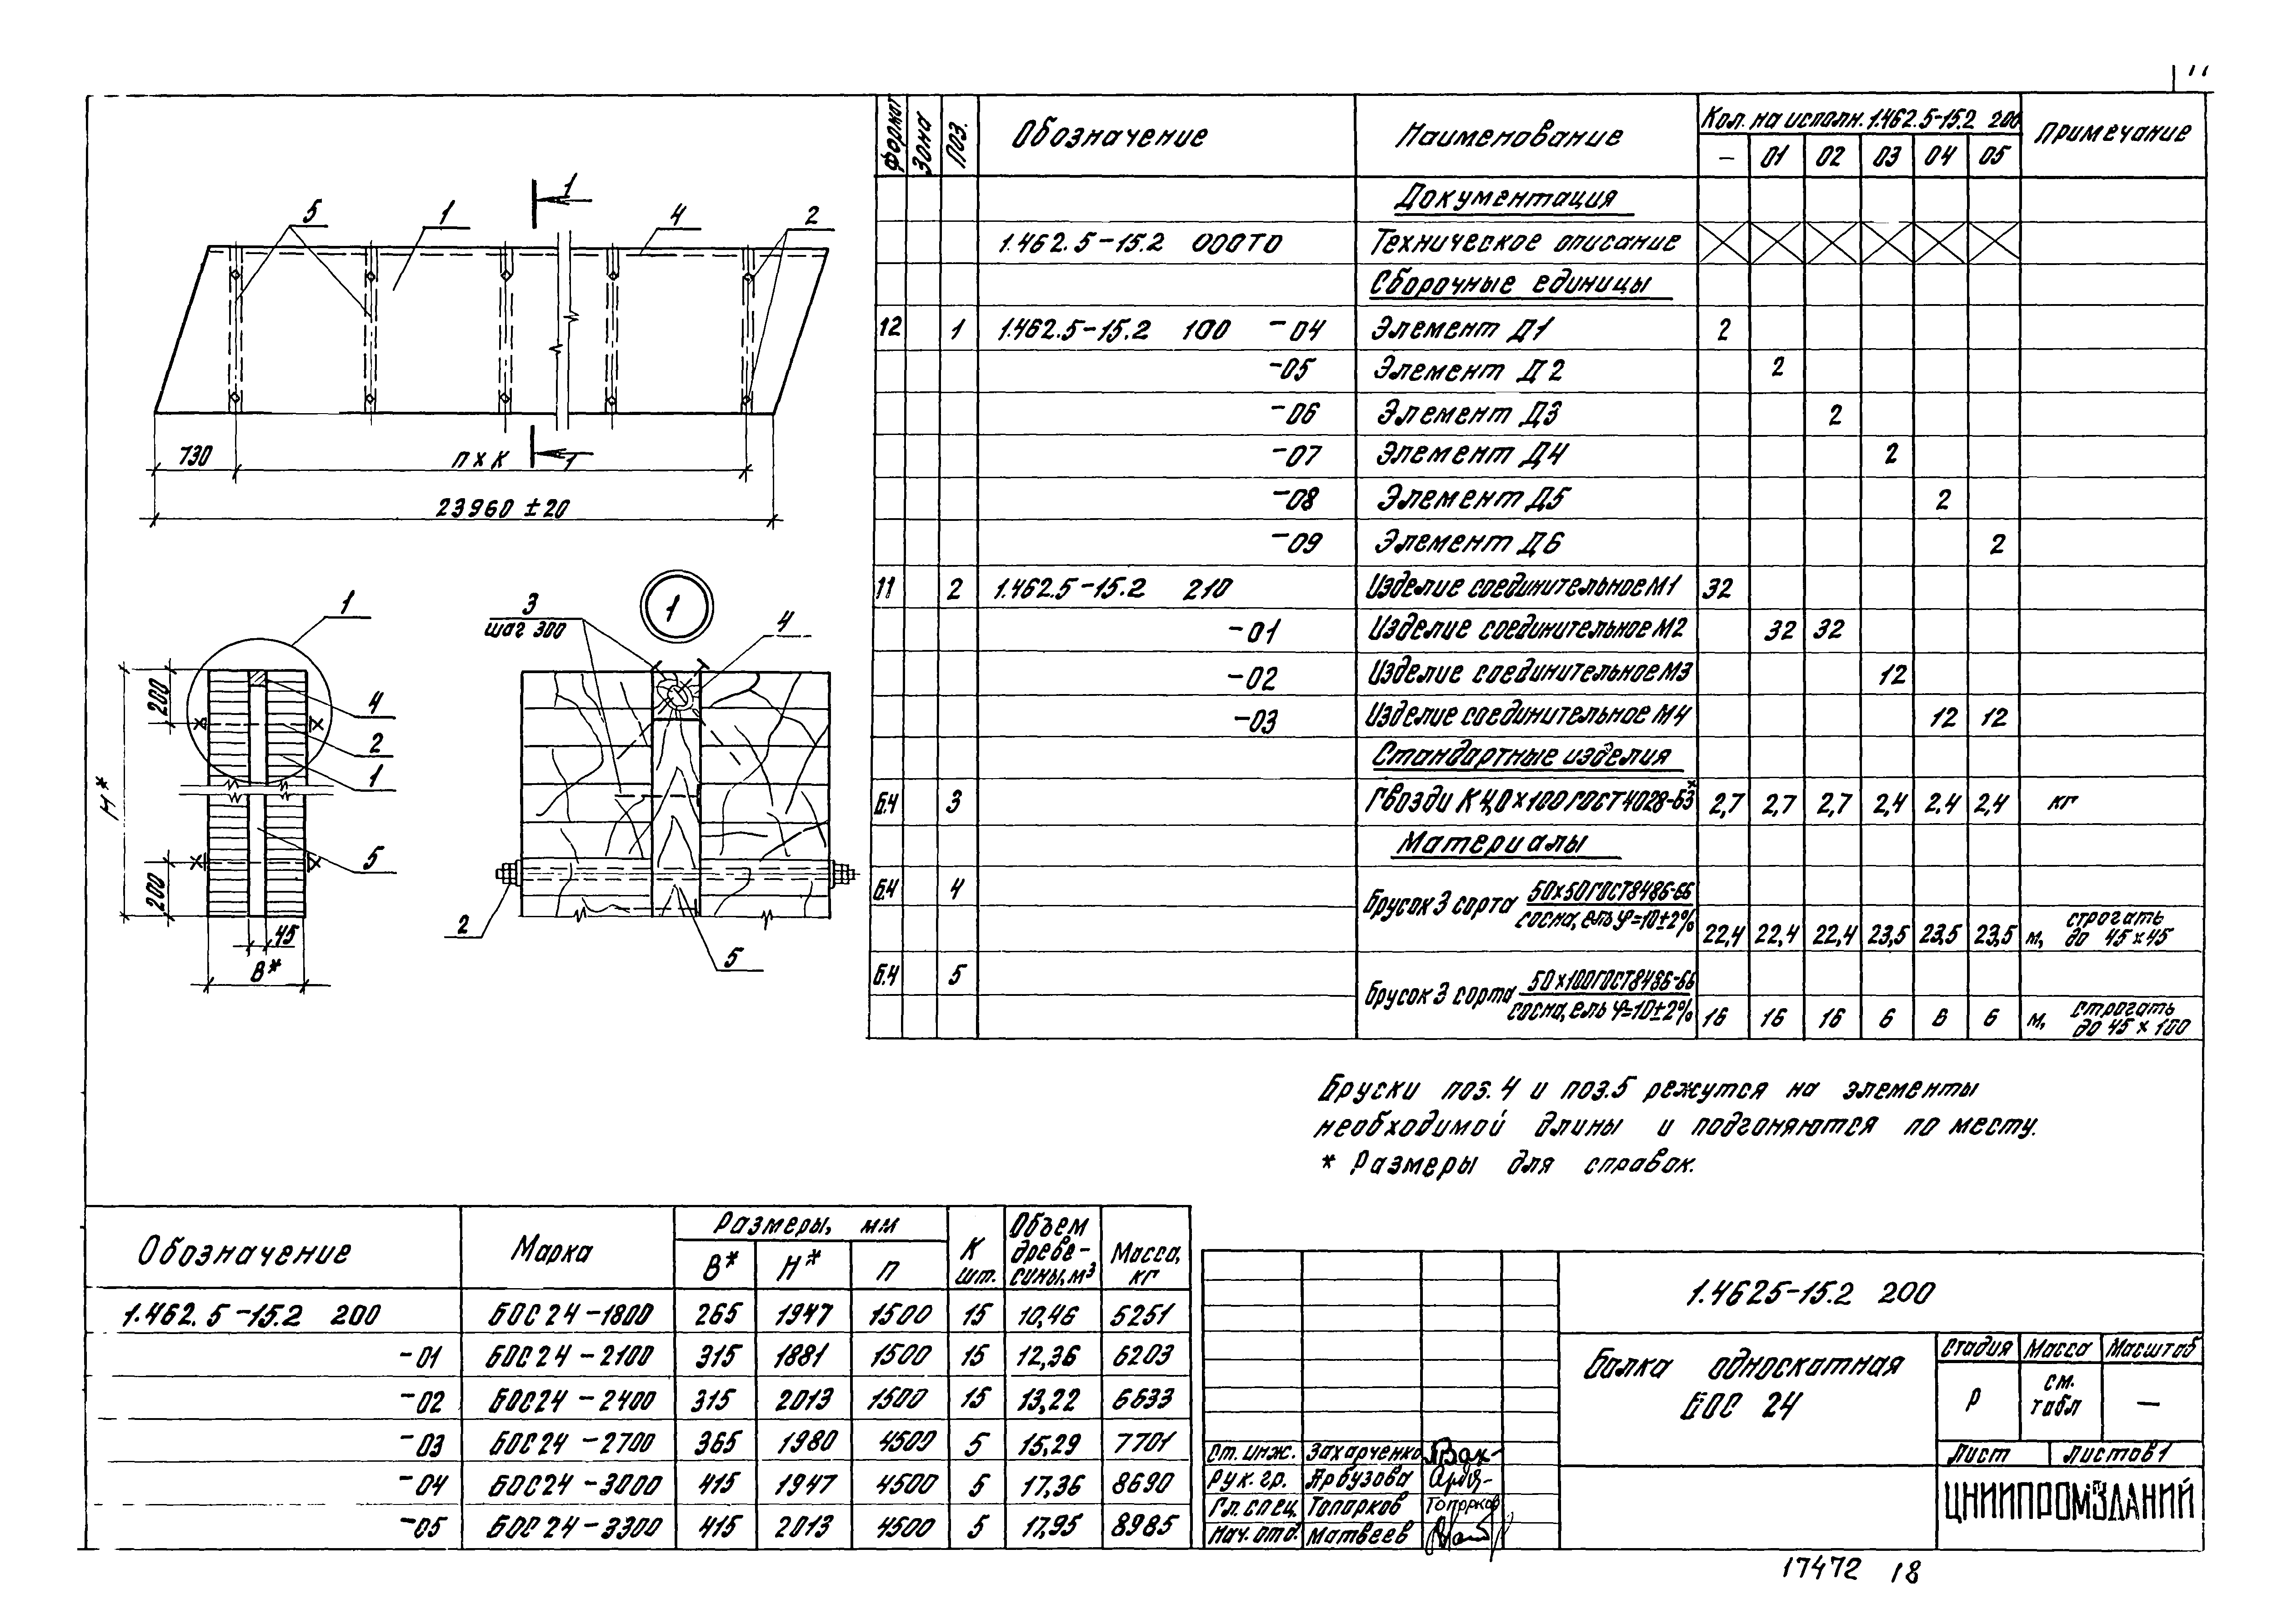 11
5
1
1
4
2
730
п х к
1
23960 ± 20
1
200
4
2
1
H*
5
200
45
B*
3
шаг 300
1
4
2
5
Формат Зона Поз. Обозначение Наименование Кол. на исполн. 1.462.5-15.2 200 Примечание
— 01 02 03 04 05
Документация
1.462.5-15.2 000ТО Техническое описание
Сборочные единицы
12 1 1.462.5-15.2 100 -04 Элемент Д1 2
-05 Элемент Д2 2
-06 Элемент Д3 2
-07 Элемент Д4 2
-08 Элемент Д5 2
-09 Элемент Д6 2
11 2 1.462.5-15.2 210 Изделие соединительное М1 32
-01 Изделие соединительное М2 32 32
-02 Изделие соединительное М3 12
-03 Изделие соединительное М4 12 12
Стандартные изделия
Б.Ч 3 Гвозди К4,0×100 ГОСТ 4028-63* 2,7 2,7 2,7 2,4 2,4 2,4 кг
Материалы
Б.Ч 4 Брусок 3 сорта 50×50 ГОСТ 8486-66
сосна, ель φ=10±2% 22,4 22,4 22,4 23,5 23,5 23,5 м, строгать до 45×45
Б.Ч 5 Брусок 3 сорта 50×100 ГОСТ 8486-66
сосна, ель φ=10±2% 16 16 16 6 6 6 м, строгать до 45×100
Бруски поз. 4 и поз. 5 режутся на элементы
необходимой длины и подгоняются по месту.
* Размеры для справок.
Обозначение Марка Размеры, мм К шт. Объем древесины, м³ Масса, кг
В* Н* п
1.462.5-15.2 200 БОС24-1800 265 1947 1500 15 10,46 5251
-01 БОС24-2100 315 1881 1500 15 12,36 6203
-02 БОС24-2400 315 2013 1500 15 13,22 6633
-03 БОС24-2700 365 1980 4500 5 15,29 7701
-04 БОС24-3000 415 1947 4500 5 17,36 8690
-05 БОС24-3300 415 2013 4500 5 17,95 8985
1.4625-15.2 200
Балка односкатная
БОС 24
Стадия Масса Масштаб
Р см. табл —
Лист Листов 1
ЦНИИПРОМЗДАНИЙ
Ст. инж. Захарченко
Рук. гр. Арбузова
Гл. спец. Топорков Топорков
Нач. отд. Матвеев
17472 18